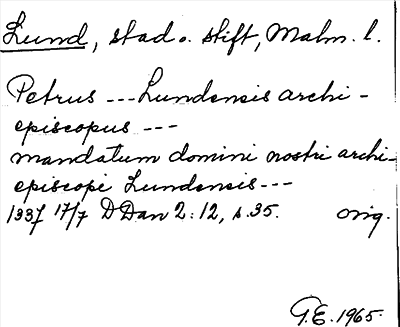 Lund, stad o. stift, Malm. l.
Petrus --- Lundensis archi-
episcopus ---
mandatum domini nostri archi-
episcopi Lundensis ---
1337 17/7 DDan 2:12, s.35. orig.
G.E. 1965.